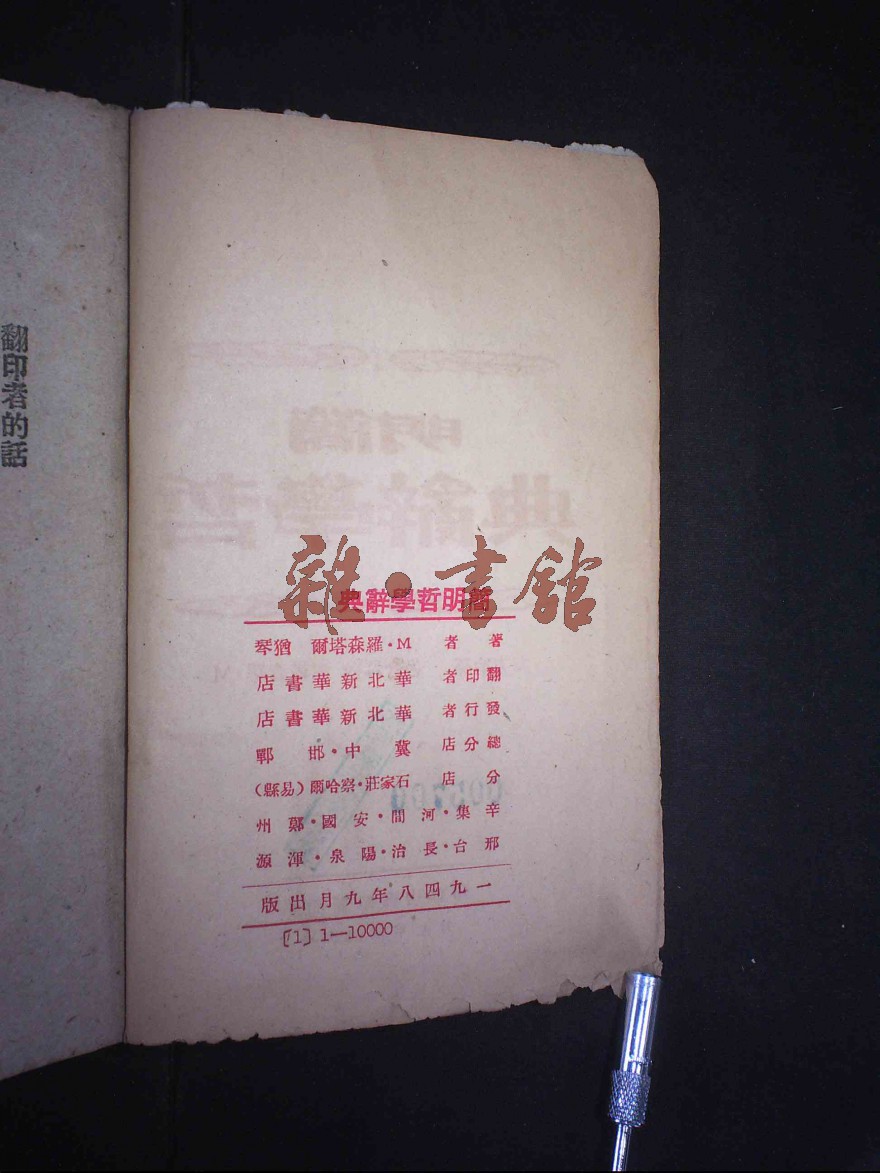 翻印者的話
雜·書館
簡明哲學辭典
著者 M·羅森塔爾 猶琴
翻印者 華北新華書店
發行者 華北新華書店
總分店 冀中·邯鄲
分店 石家莊·察哈爾(易縣)
辛集·河間·安國·鄭州
邢台·長治·陽泉·渾源
一九四八年九月出版
〔1〕1—10000